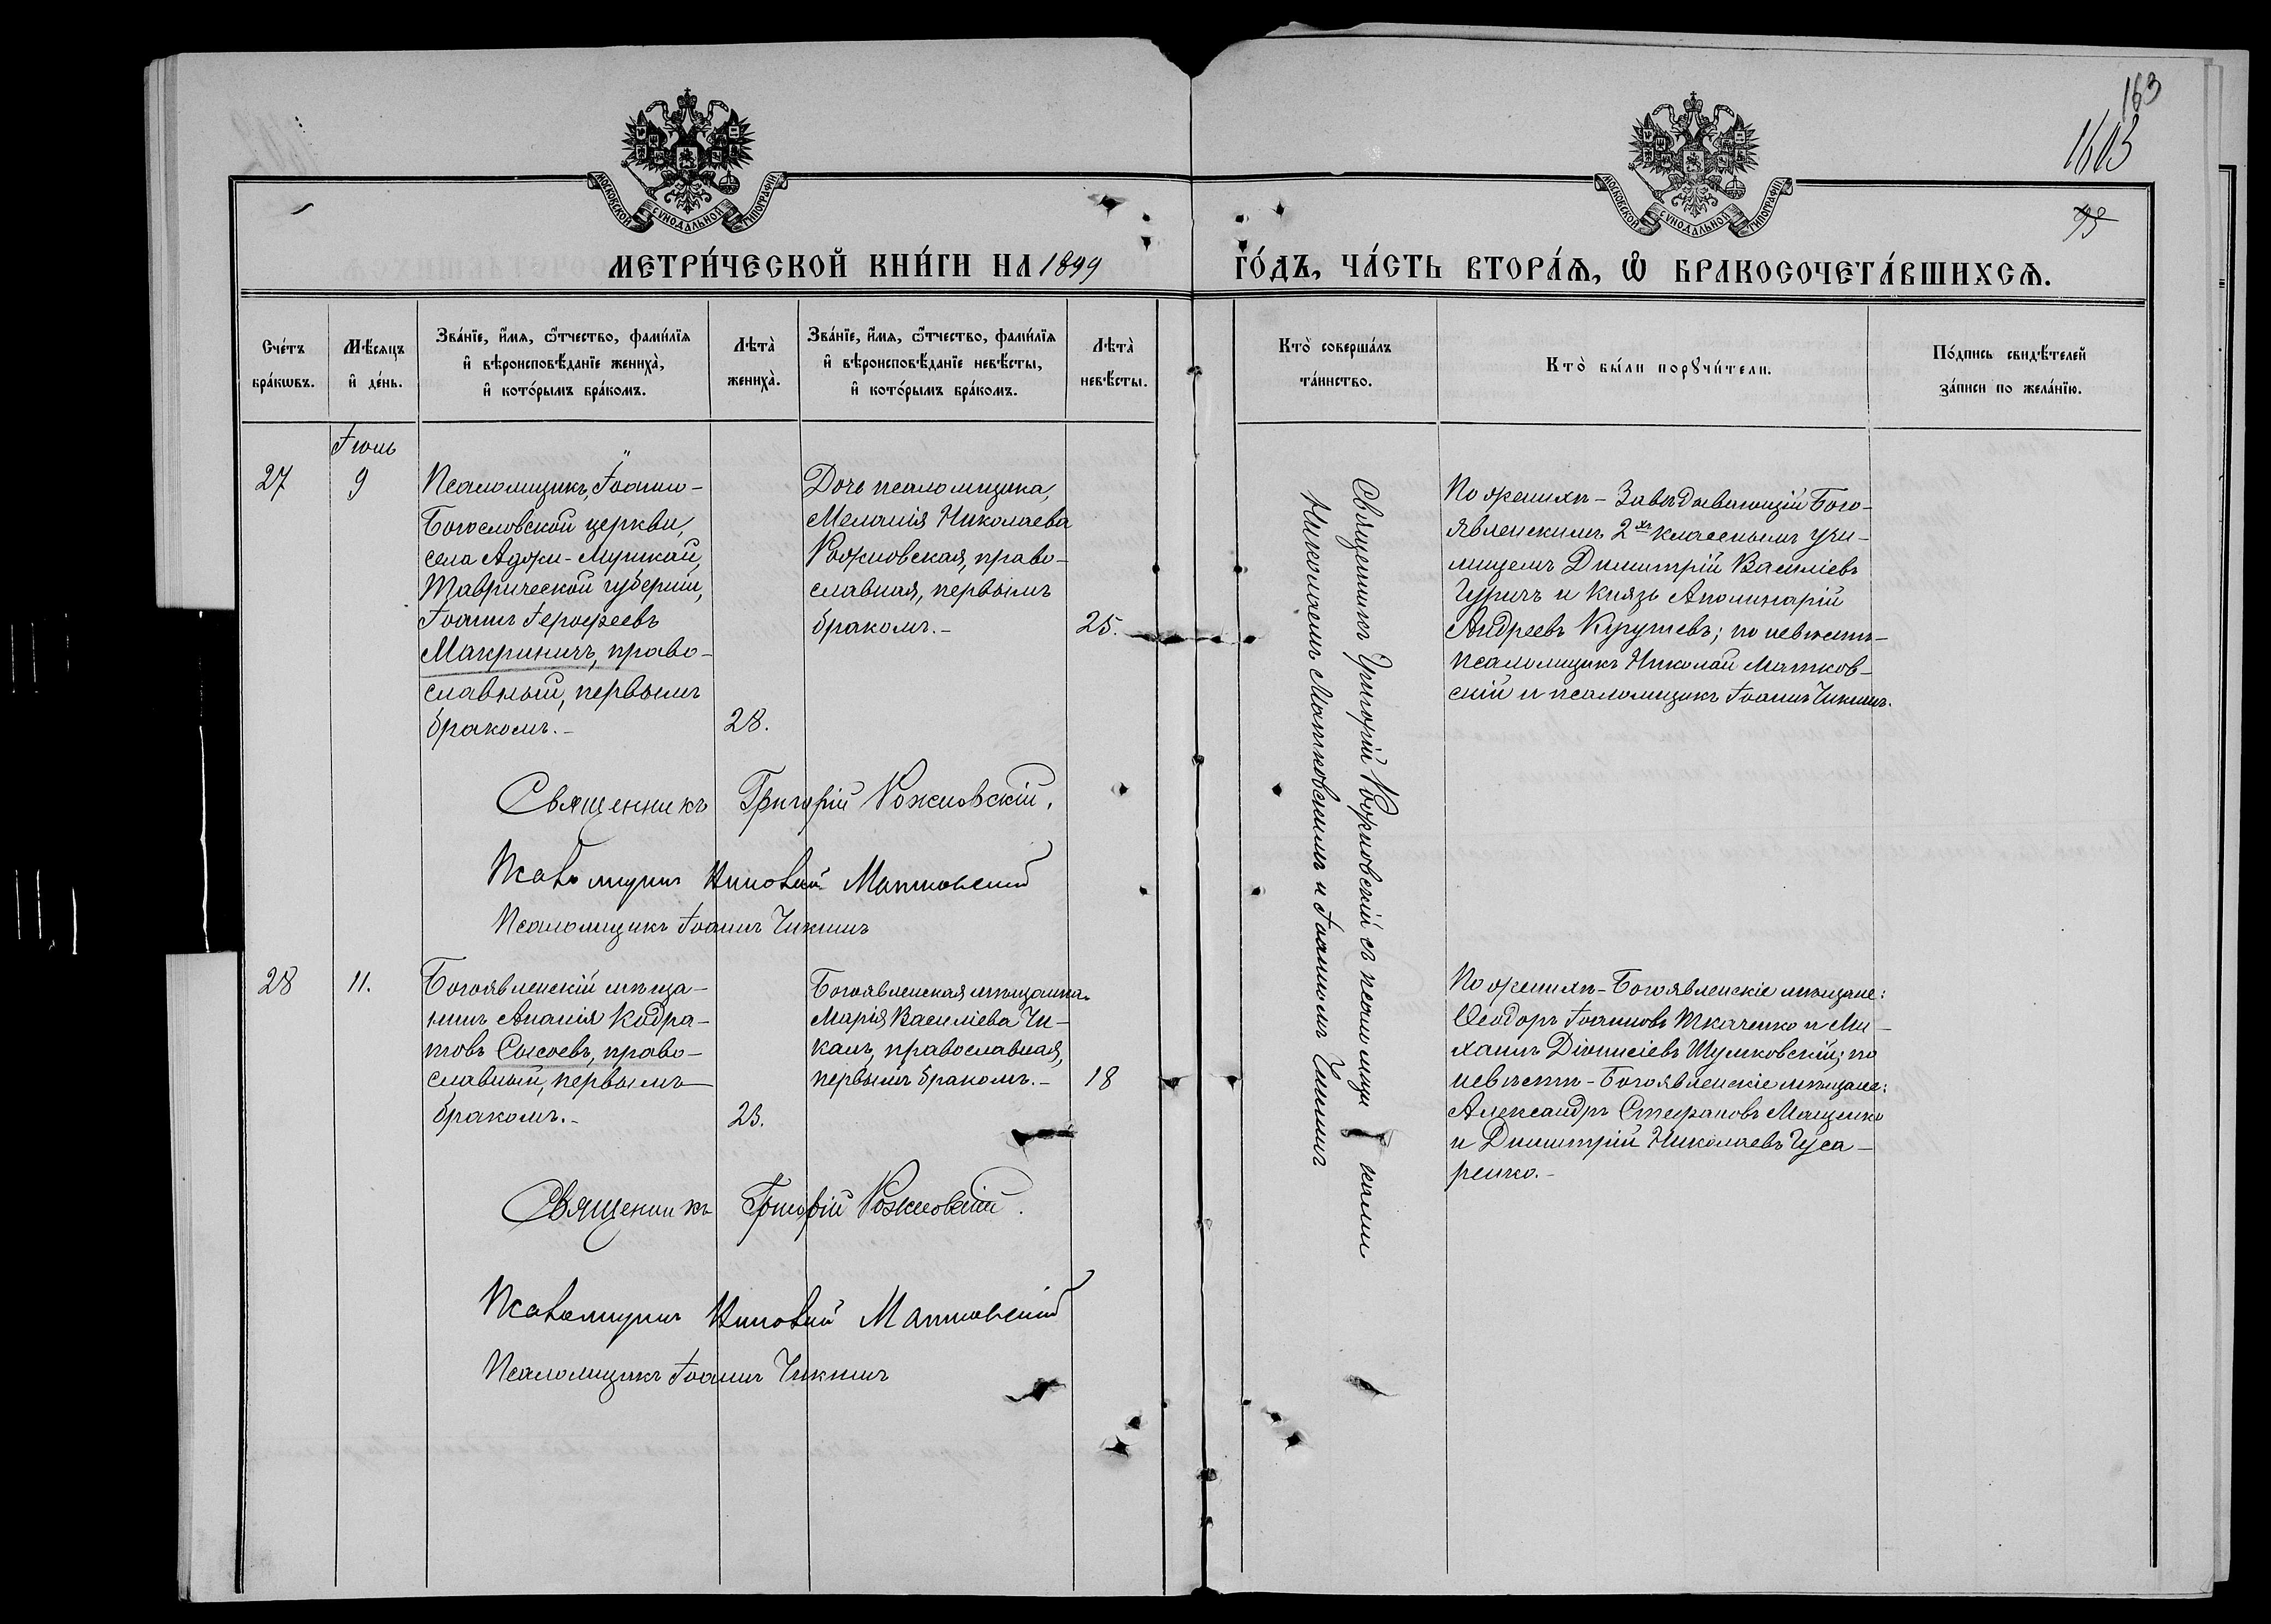 163
1613
95
МОСКОВСКОЙ СУНОДАЛЬНОЙ ТИПОГРАФІИ
МОСКОВСКОЙ СУНОДАЛЬНОЙ ТИПОГРАФІИ
МЕТРИ́ЧЕСКОЙ КНИ́ГИ НА 1899
ГО́ДЪ, ЧА́СТЬ ВТОРА́Ѧ, Ѽ БРАКОСОЧЕТА́ВШИХСѦ.
Сче́тъ
бра́кѡвъ.
Мѣ́сяцъ
и҆ де́нь.
Зва́нїе, и҆́мя, ѻ҆́тчество, фами́лїя
и҆ вѣроисповѣ́данїе жениха̀,
и҆ кото́рымъ бра́комъ.
Лѣта̀
жениха̀.
Зва́нїе, и҆́мя, ѻ҆́тчество, фами́лїя
и҆ вѣроисповѣ́данїе невѣ́сты,
и҆ кото́рымъ бра́комъ.
Лѣта̀
невѣ́сты.
Кто̀ соверша́лъ
та́инство.
Кто̀ бы́ли порꙋчи́тели.
По́дпись свидѣ́телей
за́писи по жела́нїю.
Іюль
27
9
Псаломщикъ, Іоанно-
Богословской церкви,
села Аджи-Мушкай,
Таврической губерніи,
Іоаннъ Іерофеевъ
Макриничъ, право-
славный, первымъ
бракомъ.-
28.
Дочь псаломщика,
Меланія Николаева
Рожновская, право-
славная, первымъ
бракомъ.-
25.
Священникъ Григорій Рожновскій съ псаломщиками
Николаемъ Матковскимъ и Іоанномъ Чикинъ
По женихѣ - Завѣдывающій Бого-
явленскимъ 2хъ класснымъ учи-
лищемъ Димитрій Василіевъ
и Князь Аполинарій
Андреевъ Кугушевъ; по невѣстѣ-
псаломщикъ Николай Матков-
скій и псаломщикъ Іоаннъ Чикинъ.
Священникъ Григорій Рожновскій.
Псаломщикъ Николай Матковскій
Псаломщикъ Іоаннъ Чикинъ
28
11.
Богоявленскій мѣща-
нинъ Ананія Кодра-
товъ Сысоевъ, право-
славный, первымъ
бракомъ.-
23.
Богоявленская мѣщанка
Марія Василіева Чи-
канъ, православная,
первымъ бракомъ.-
18
По женихѣ - Богоявленскіе мѣщане:
Ѳеодоръ Іоанновъ Ткаченко и Ми-
хаилъ Діонисіевъ Шумковскій; по
невѣстѣ - Богоявленскіе мѣщане:
Александръ Стефановъ Мащенко
и Димитрій Николаевъ Гуса-
ренко.-
Священникъ Григорій Рожновскій.
Псаломщикъ Николай Матковскій
Псаломщикъ Іоаннъ Чикинъ